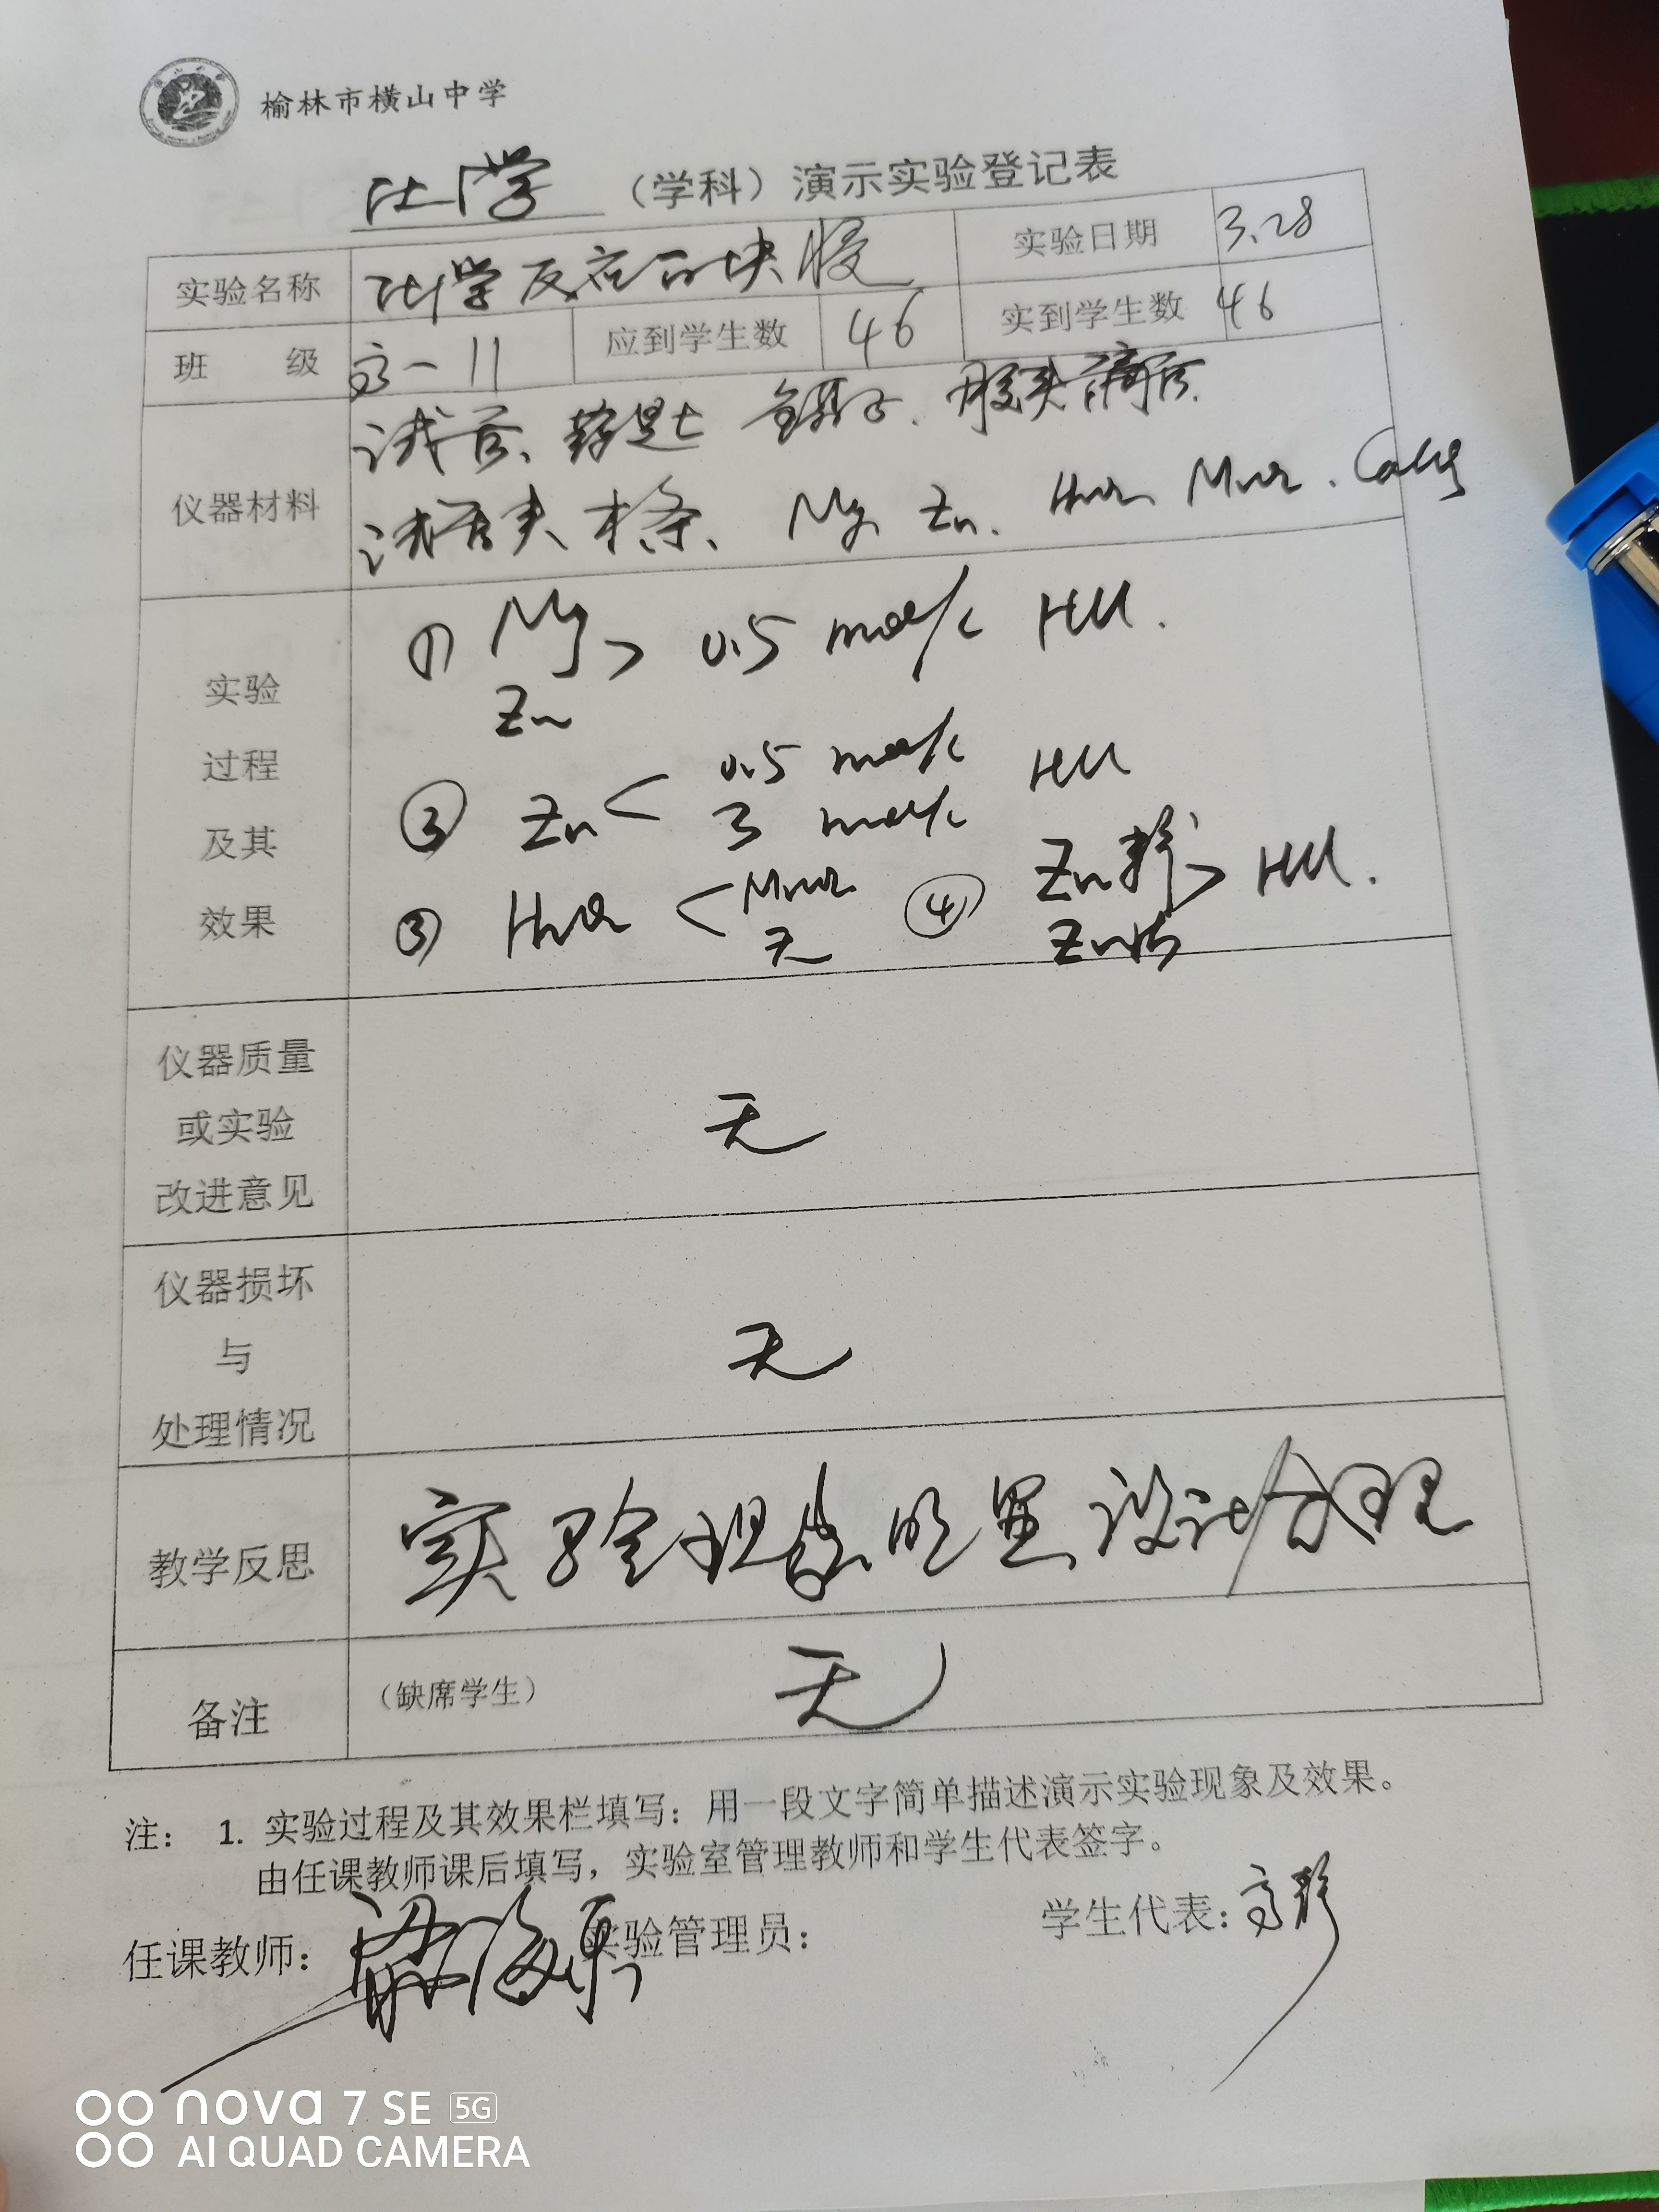 榆林市横山中学
化学 (学科) 演示实验登记表
实验名称 化学反应的快慢 实验日期 3.28
班 级 高一11 应到学生数 46 实到学生数 46
仪器材料
试管、药匙、镊子、胶头滴管、
试管夹、木条、Mg Zn.
实验
过程
及其
效果
① Mg Zn > 0.5 mol/L HCl.
② Zn < 0.5 mol/L 3 mol/L HCl
③ H2O2 < MnO2 无 ④ Zn粉 Zn片 > HCl.
仪器质量
或实验
改进意见
无
仪器损坏
与
处理情况
无
教学反思 实验现象明显、设计合理
备注 (缺席学生) 无
注: 1. 实验过程及其效果栏填写:用一段文字简单描述演示实验现象及效果。
由任课教师课后填写,实验室管理教师和学生代表签字。
任课教师: 实验管理员: 学生代表:高静
nova 7 SE 5G
AI QUAD CAMERA